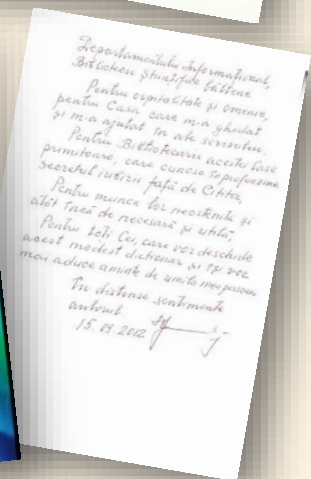 Departamentului Informațional,
Bibliotecii Științifice bălțene
Pentru ospitalitate și omenie,
pentru Casa, care m-a ghidat
și m-a ajutat în ale scrisului.
Pentru Bibliotecarii acestei Case
primitoare, care cunosc în profunzime
secretul iubirii față de Cititor,
Pentru munca lor neostenită și
atât încă de necesară și utilă,
Pentru toți Cei, care vor deschide
acest modest dicționar și își vor
mai aduce aminte de umila mea persoană
Cu distinse sentimente
autorul.
15.09.2012